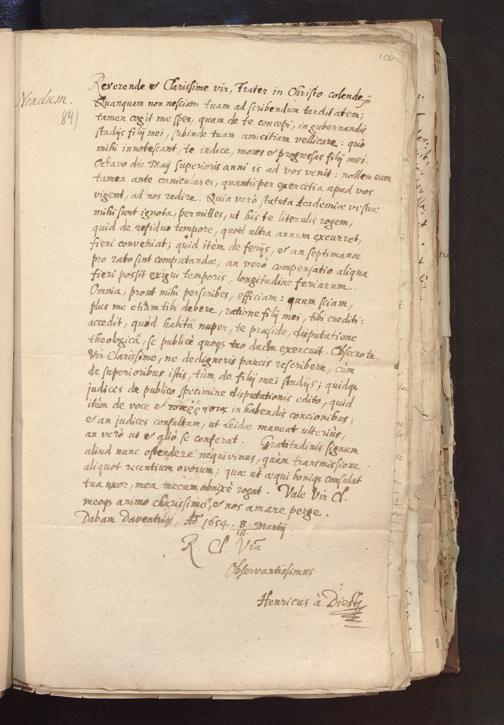 150
Nondum.
841
Reverende et Clarissime vir, Frater in Christo colende,
Quanquam non nesciam tuam ad scribendum tarditatem;
tamen cogit me spes, quam de te concepi, in gubernandis
studijs filij mei, subinde tuam amicitiam vellicare: quo
mihi innotescant, te indice, mores et progressus filij mei.
Octavo die Maij superioris anni is ad vos venit: nollem eum
tamen ante caniculares, quantisper exercitia apud vos
vigent, ad nos redire. Quia verò statuta Academiæ vestræ
mihi sunt ignota, permittes, ut his te literulis rogem,
quid de residuo tempore, quod ultra annum excurret,
fieri conveniat; quid item de ferijs, et an septimanæ
pro rato sint computandæ; an vero compensatio aliqua
fieri possit exigui temporis, longitudine feriarum.
Omnia, prout mihi perscribes, efficiam: quum sciam,
plus me etiam tibi debere, ratione filij mei, tibi crediti:
accedit, quod habitâ nuper, te præside, disputatione
theologicâ, se publicè quoque tuo ductu exercuit. Obsecro te
Vir Clarissime, ne dedigneris paucis rescribere, cùm
de superioribus istis, tùm de filij mei studijs; quidque
judices de publico specimine disputationis edito, quid
item de voce et in habendis concionibus;
et an judices consultum, ut Leidæ maneat ulterius,
an verò ut et quò se conferat. Gratitudinis signum
aliud nunc ostendere nequivimus, quàm transmissione
aliquot recentium ovorum; quæ ut æqui bonique consulat
tua uxor, mea mecum obnixè rogat. Vale Vir Cl.
meque animo clarissime, et nos amare perge.
Dabam Daventriæ, Aº 1654. 8. Martij
18.
R. Cl. Vræ
Observantissimus
Henricus à Diest